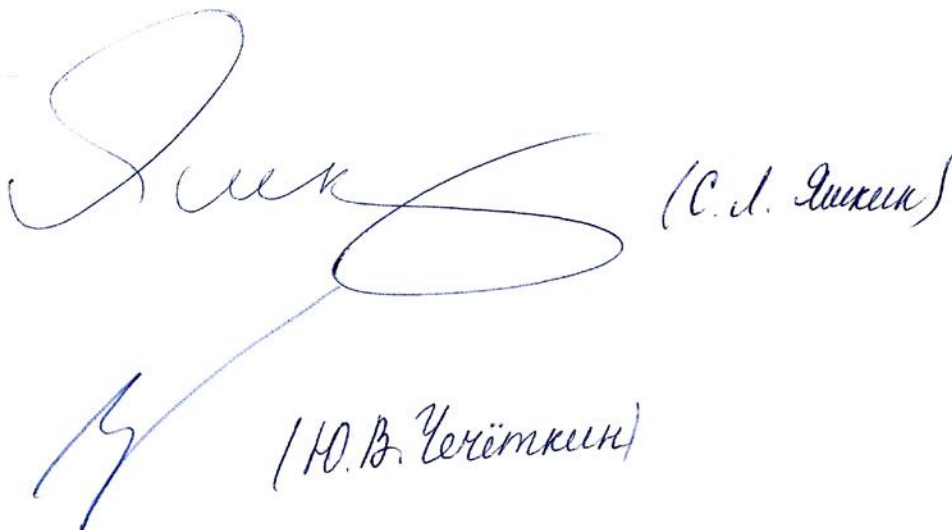 Яшк (С. Л. Яшкин)
(Ю. В. Чечёткин)